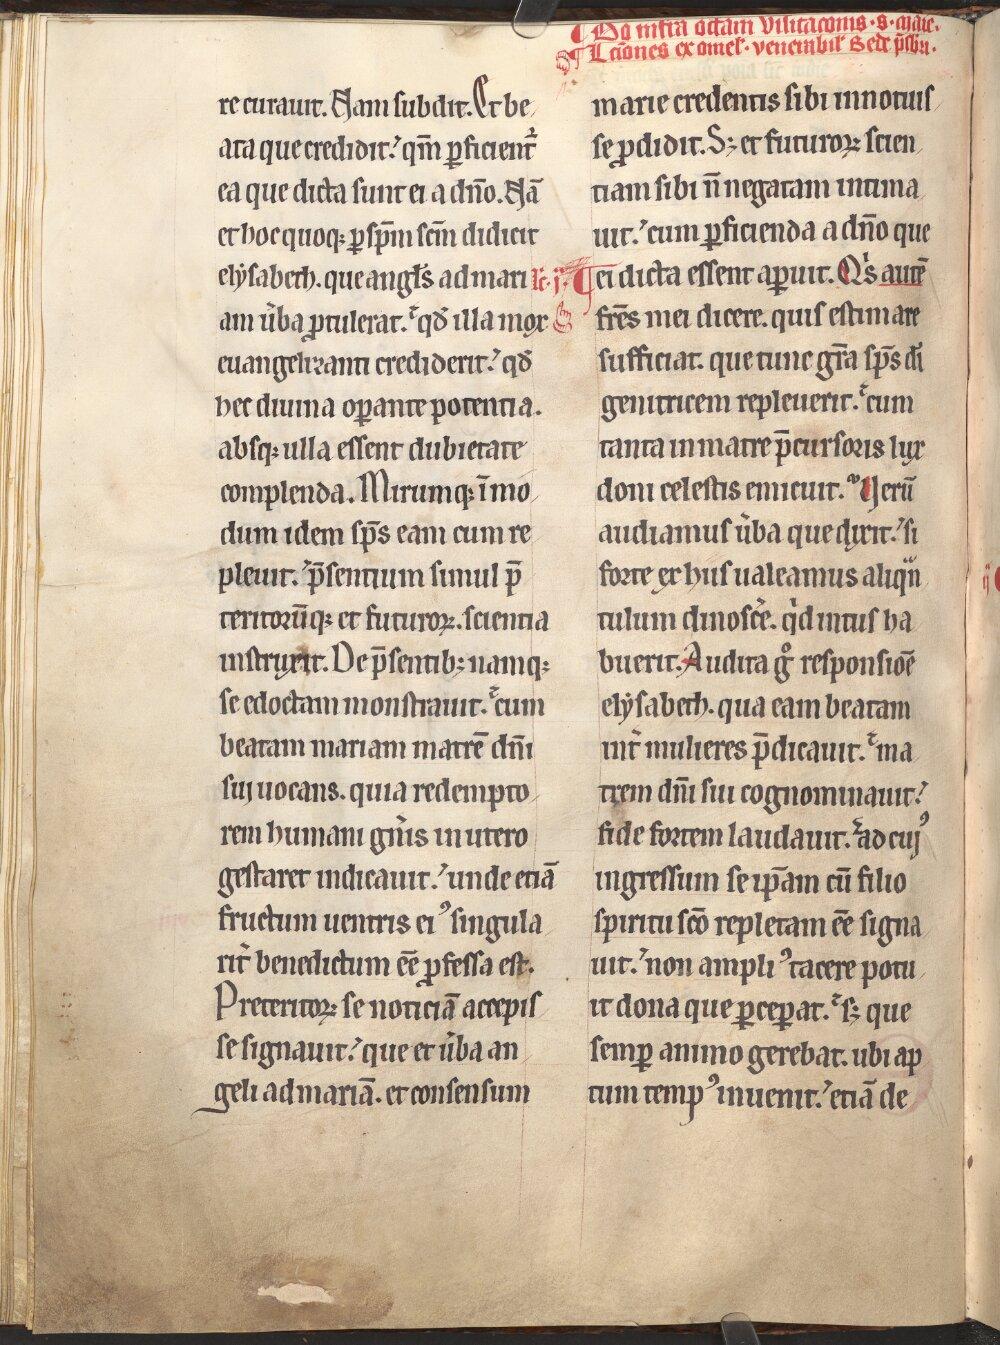 ¶ Do infra octam visitaconis · s · marie ·
¶ Lcīones ex omel · venerabil Bede p̄sbri ·
re curauit. Nam subdit. Et be
ata que credidit? qm̄ ꝑficient᷑
ea que dicta sunt ei a dn̄o. Nā
et hoc quoq; ꝑ sp̄m scm̄ didicit
elẏsabeth. que angl's ad mari
am u̓ba ꝓtulerat. qd̄ illa mox
euangelizanti crediderit? qd̄
hec diuina oꝑante potentia.
absq; ulla essent dubietate
complenda. Mirumq; ī mo
dum idem sp̄s eam cum re
pleuit. p̄sentium simul p̄
teritorūq; et futuroꝝ. scientia
instruxit. De p̄sentib; namq;
se edoctam monstrauit. cum
beatam mariam matrē dn̄i
sui uocans. quia redempto
rem humani gn̄is in utero
gestaret indicauit. unde etiā
fructum uentris eiꝰ singula
rit᷑ benedictum ēē ꝓfessa est.
Preteritoꝝ se noticiā accepis
se signauit? que et u̓ba an
geli ad mariā. et consensum
marie credentis sibi innotuis
se ꝓdidit. S; et futuroꝝ scien
tiam sibi n̄ negatam intima
uit. cum ꝑficienda a dn̄o que
lc̄. ij. ei dicta essent aꝑuit. Qi's autē
fr̄es mei dicere. quis estimare
sufficiat. que tunc gr̄a sp̄s dī
genitricem repleuerit. cum
tanta in matre p̄cursoris lux
doni celestis emicuit. Uerū
audiamus u̓ba que dixit. si
forte ex hiis ualeamus aliqn̄
tulum dinosc̓e. qid intus ha
buerit. Audita gͦ responsiōe
elẏsabeth. qua eam beatam
int᷑ mulieres p̄dicauit. ma
trem dn̄i sui cognominauit?
fide fortem laudauit. ad cuiꝰ
ingressum se ip̄am cū filio
spiritu scō repletam ēē signa
uit. non ampliꝰ tacere potu
it dona que ꝑceꝑat. s; que
semꝑ animo gerebat. ubi ap
tum tempꝰ inuenit. etiā de